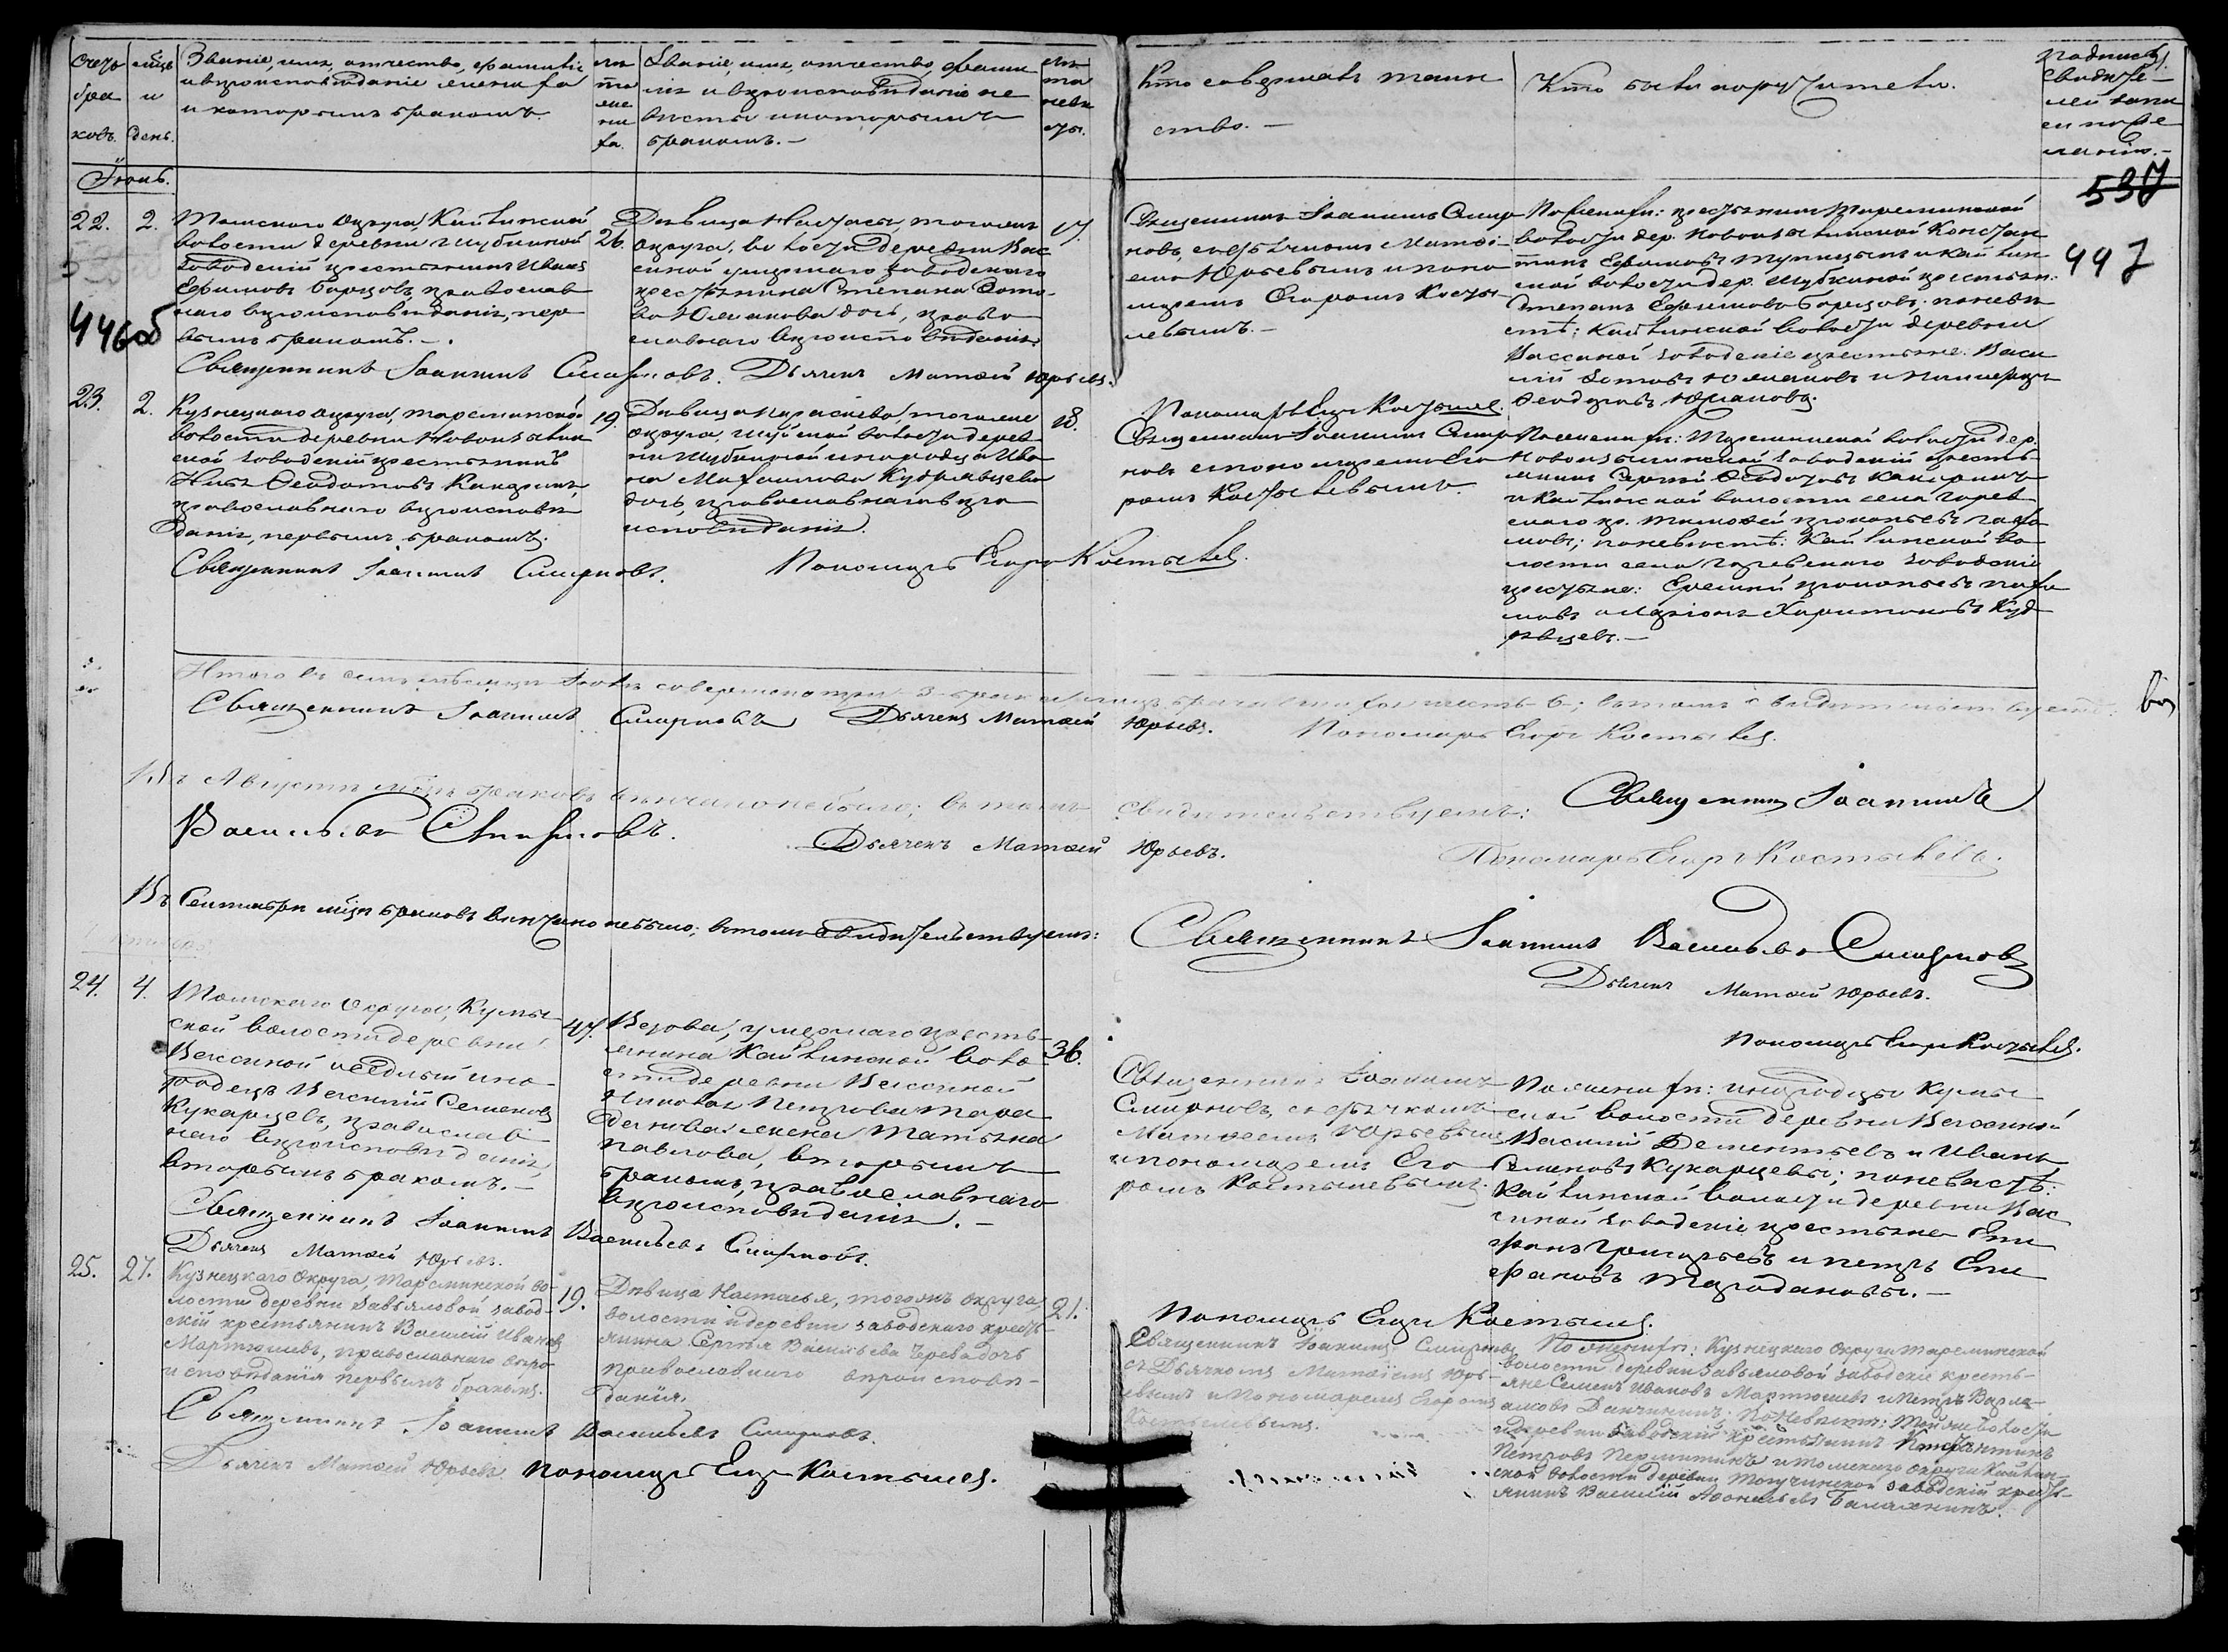 Счетъ браковъ.
мѣсяцъ и день.
Званіе, имя, отчество, фамилія
и вѣроисповѣданіе жениха
и которымъ бракомъ.
лѣта жениха.
Званіе, имя, отчество, фами
лія и вѣроисповѣданіе не
вѣсты и которымъ
бракомъ. —
лѣта невѣсты.
Кто совершалъ таин
ство. —
Кто были поручители.
подпись
свидѣте-
лей запи
си по же
ланію. —
537
Іюль.
22. 2.
Томскаго округа, Кайлинской
волости деревни Шубкиной
заводскій крестьянинъ Иванъ
Ефимовъ Борцовъ, православ
наго вѣроисповѣданія, пер
вымъ бракомъ. —
26.
Дѣвица Настасья, тогоже
округа, волости деревни Вас
синой умершаго заводскаго
крестьянина Степана Зото-
ва Юлманова дочь, право
славнаго вѣроисповѣданія.
17.
Священникъ Іоаннъ Смир
новъ, съ дьячкомъ Матѳі-
емъ Юрьевымъ и поно
маремъ Егоромъ Косты-
левымъ. —
По женихѣ: крестьянинъ Тарсминской
волости дер. Новоизылинской Констан
тинъ Ефимовъ и Кайлин
ской волости дер. Шубкиной крестьян.
Степанъ Ефимовъ Борцовъ; по невѣ
стѣ: Кайлинской волости деревни
Вассиной заводскіе крестьяне: Васи
лій Зотовъ Юлмановъ и
Ѳеодоровъ Юрманова.
447
446об
Священникъ Іоаннъ Смирновъ. Дьячекъ Матѳей Юрьевъ.
Пономарь Егоръ Костылев.
23. 2.
Кузнецкаго округа, Тарсминской
волости деревни Новоизылин
ской заводскій крестьянинъ
Ѳеодотовъ
православнаго вѣроисповѣ
данія, первымъ бракомъ.
19.
Дѣвица Параскева, тогоже
округа, волости дерев
ни Шубкиной инородца Ива
на Кудрявцева
дочь, православнаго вѣро
исповѣданія.
18.
Священникъ Іоаннъ Смир
новъ съ пономаремъ Его
ромъ Костылевымъ.
По женихѣ: Тарсминской волости дер.
Новоизылинской заводскій кресть
янинъ Сергѣй Ѳеодотовъ
и Кайлинской волости села Горев
скаго кр. Тимоѳей Прокопьевъ
мовъ; по невѣстѣ: Кайлинской во-
лости села Горевскаго заводскіе
крестьяне: Еремѣй Прокопьевъ
мовъ и Харитоновъ Куд
рявцевъ. —
Священникъ Іоаннъ Смирновъ. Пономарь Егоръ Костылев.
Итого въ семъ мѣсяцѣ Іюлѣ совершено три 3 брака шесть 6; въ томъ свидѣтельствуемъ:
Священникъ Іоаннъ Смирновъ Дьячекъ Матѳей Юрьевъ. Пономарь Егоръ Костылев.
Въ Августѣ мѣсяцѣ браковъ вѣнчано небыло; въ томъ свидѣтельствуемъ: Священникъ Іоаннъ
Васильевъ Смирновъ. Дьячекъ Матѳей Юрьевъ. Пономарь Егоръ Костылевъ.
Въ Сентябрѣ мѣсяцѣ браковъ вѣнчано небыло; втомъ свидѣтельствуемъ: Священникъ Іоаннъ Васильевъ Смирновъ
Дьячекъ Матѳей Юрьевъ.
Пономарь Егоръ Костылев.
24. 4.
Томскаго округа, Кумы
ской волости деревни
Вассиной осѣдлый ино
родецъ Семеновъ
Кукарцевъ, православ
наго вѣроисповѣданія,
вторымъ бракомъ. —
47.
Вдова, умершаго кресть-
янина Кайлинской воло
сти деревни Вассиной
Петрова
жена Татьяна
Павлова, вторымъ
бракомъ, православнаго
вѣроисповѣданія. —
36.
Священникъ Іоаннъ
Смирновъ, съ дьячкомъ
Матѳеемъ Юрьевымъ
и пономаремъ Его
ромъ Костылевымъ.
По женихѣ: инородцы Кумы
ской волости деревни Вассиной
Василій Дементьевъ и Иванъ
Семеновъ Кукарцевы; по невѣстѣ:
Кайлинской волости деревни Вас
синой заводскіе крестьяне Епи
фанъ Григорьевъ и Петръ Епи
фановъ
Священникъ Іоаннъ Васильевъ Смирновъ.
Дьячекъ Матѳей Юрьевъ.
Пономарь Егоръ Костылев.
25. 27.
Кузнецкаго округа, Тарсминской во-
лости деревни Завьяловой завод-
скій крестьянинъ Василій Ивановъ
Мартюшевъ, православнаго вѣро
исповѣданія первымъ бракомъ.
19.
Дѣвица Настасья, тогожъ округа,
волости и деревни заводскаго кресть-
янина Сергѣя Васильева Черева дочь
православнаго вѣроисповѣ-
данія.
21.
Священникъ Іоаннъ Смирновъ
съ дьячкомъ Матѳіемъ Юрь-
евымъ и пономаремъ Егоромъ
Костылевымъ.
По женихѣ: Кузнецкаго округа Тарсминской
волости деревни Завьяловой заводскіе кресть-
яне Семенъ Ивановъ Мартюшевъ и Петръ Варла-
амовъ Данчининъ; по невѣстѣ: Той же волости
и деревни заводскій крестьянинъ Константинъ
Петровъ Пермитинъ и Томскаго округа Кайлин-
ской волости деревни Тогучинской заводскій кресть-
янинъ Василій Аѳонасьевъ Балахнинъ.
Священникъ Іоаннъ Васильевъ Смирновъ.
Дьячекъ Матѳей Юрьевъ Пономарь Егоръ Костылев.